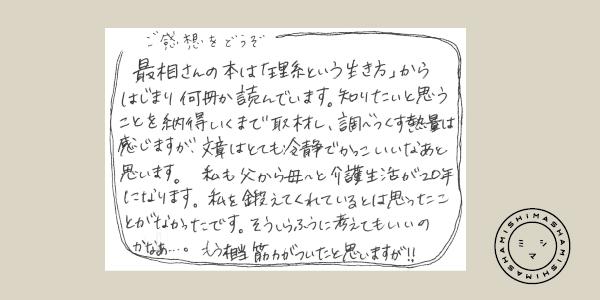 ご感想をどうぞ
最相さんの本は「理系という生き方」から
はじまり何冊か読んでいます。知りたいと思う
ことを納得いくまで取材し、調べつくす熱量は
感じますが、文章はとても冷静でかっこいいなあと
思います。 私も父から母へと介護生活が20年
になります。私を鍛えてくれているとは思ったこ
とがなかったです。そういうふうに考えてもいいの
かなあ…。もう相当筋力がついたと思いますが!!
MISHIMASHAMISHIMASHAMISHIMASHA
ミシマ